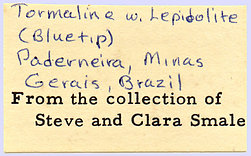 Tormaline w. Lepidolite
(Bluetip)
Paderneira, Minas
Gerais, Brazil
From the collection of
Steve and Clara Smale